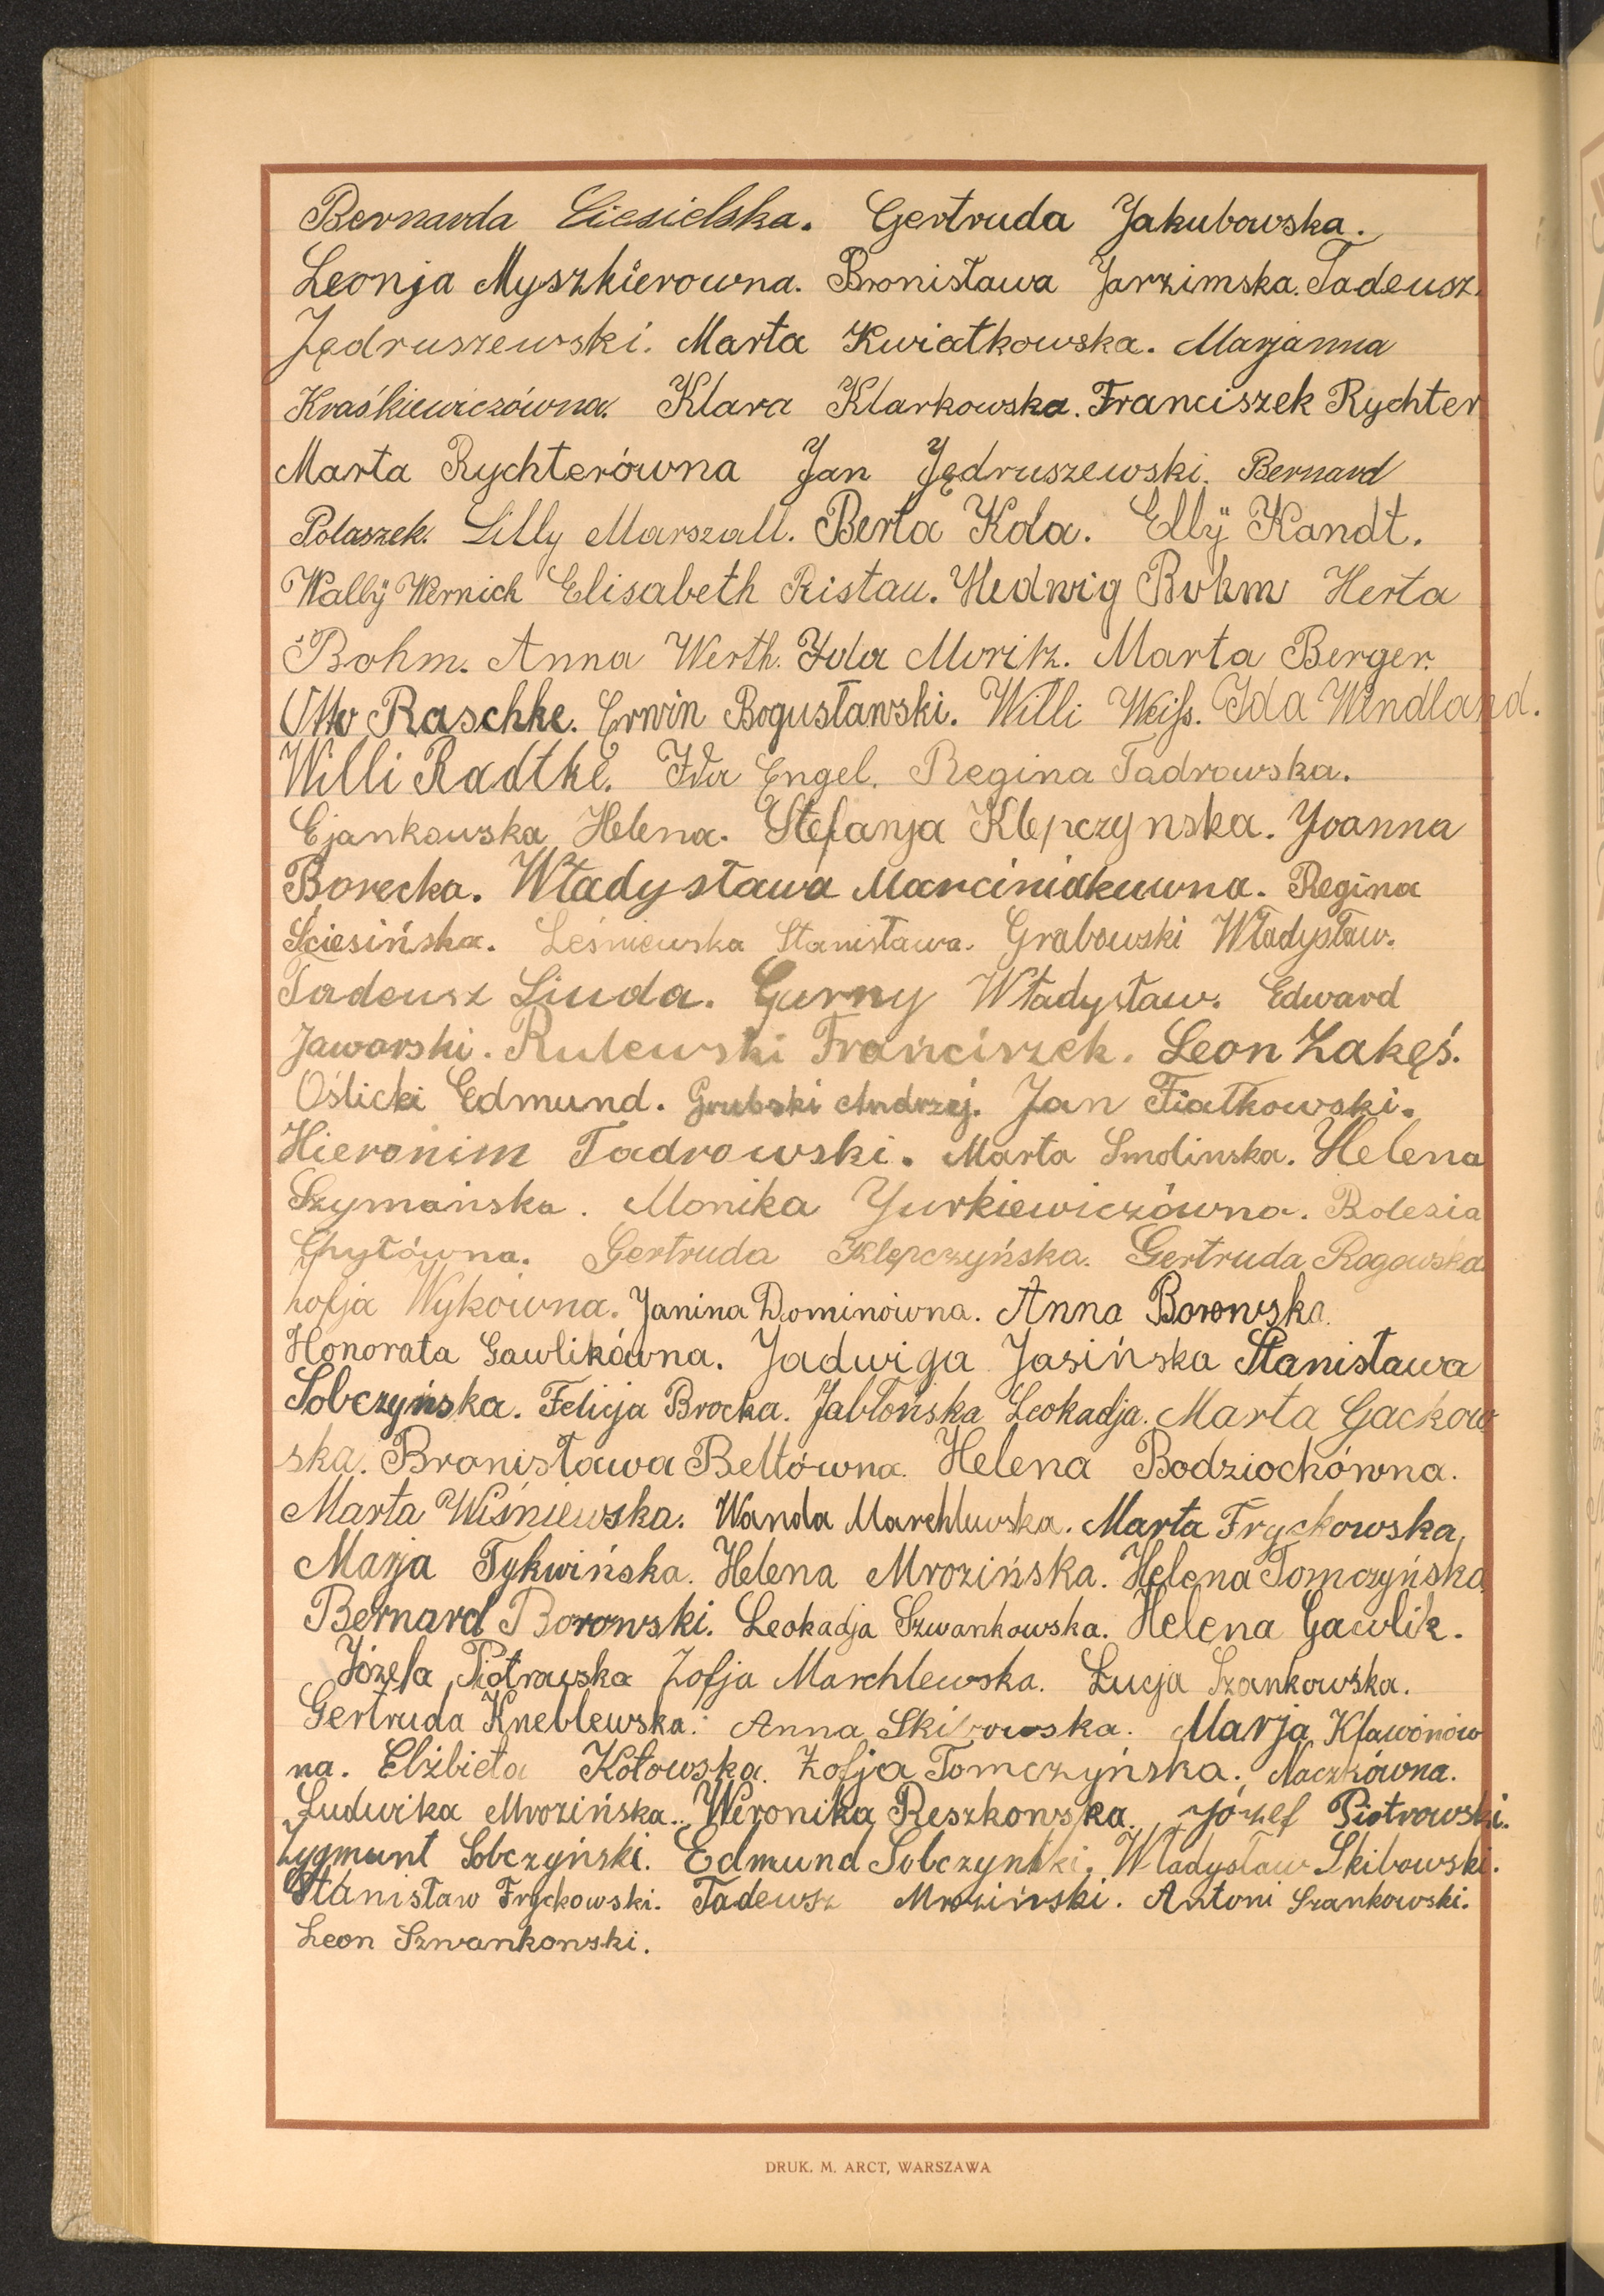 Bernarda Ciesielska. Gertruda Jakubowska.
Leonja Myszkierowna. Bronisława Jarzimska. Tadeusz
Jędruszewski. Marta Kwiatkowska. Marjanna
Kraśkiewiczówna. Klara Klarkowska. Franciszek Rychter
Marta Rychterówna Jan Jędruszewski. Bernard
Polaszek. Lilly Marszall. Berta Kola. Ellÿ Kandt.
Wallÿ Wernich Elisabeth Ristau. Hedwig Bohm Herta
Bohm. Anna Werth. Ida Moritz. Marta Berger.
Otto Raschke. Erwin Bogusławski. Willi Weiß. Ida Wendland.
Willi Radtke. Ida Engel. Regina Tadrowska.
Ejankowska Helena. Stefanja Klepczynska. Joanna
Borecka. Władysława Marciniakuwna. Regina
Ściesińska. Leśniewska Stanisława. Grabowski Władysław.
Tadeusz Liuda. Gurny Władysław. Edward
Jaworski. Rulewski Franciszek. Leon Zakęś.
Oślicki Edmund. Grubski Andrzej. Jan Fiałkowski.
Hieronim Tadrowski. Marta Smolinska. Helena
Szymańska. Monika Jurkiewiczówna. Bolesia
Chyłówna. Gertruda Klepczyńska. Gertruda Rogowska
Zofja Wykówna. Janina Dominówna. Anna Borowska.
Honorata Gawlikówna. Jadwiga Jasińska Stanisława
Sobczyńska. Felicja Brocka. Jabłońska Leokadja. Marta Gackow
ska. Bronisława Beltówna. Helena Bodziochówna.
Marta Wiśniewska. Wanda Marchlewska. Marta Fryckowska,
Marja Tykwińska. Helena Mrozińska. Helena Tomczyńska
Bernard Borowski. Leokadja Szwankowska. Helena Gawlik.
Józefa Piotrowska Zofja Marchlewska. Łucja Szankowska.
Gertruda Kneblewska. Anna Skibowska. Marja Klawonów
na. Elżbieta Kołowska. Zofja Tomczyńska. Naczkówna.
Ludwika Mrozińska. Weronika Reszkowska. Józef Piotrowski.
Zygmunt Sobczyński. Edmund Sobczynski. Władysław Skibowski.
Stanisław Fryckowski. Tadeusz Mroziński. Antoni Szankowski.
Leon Szwankowski.
DRUK. M. ARCT, WARSZAWA